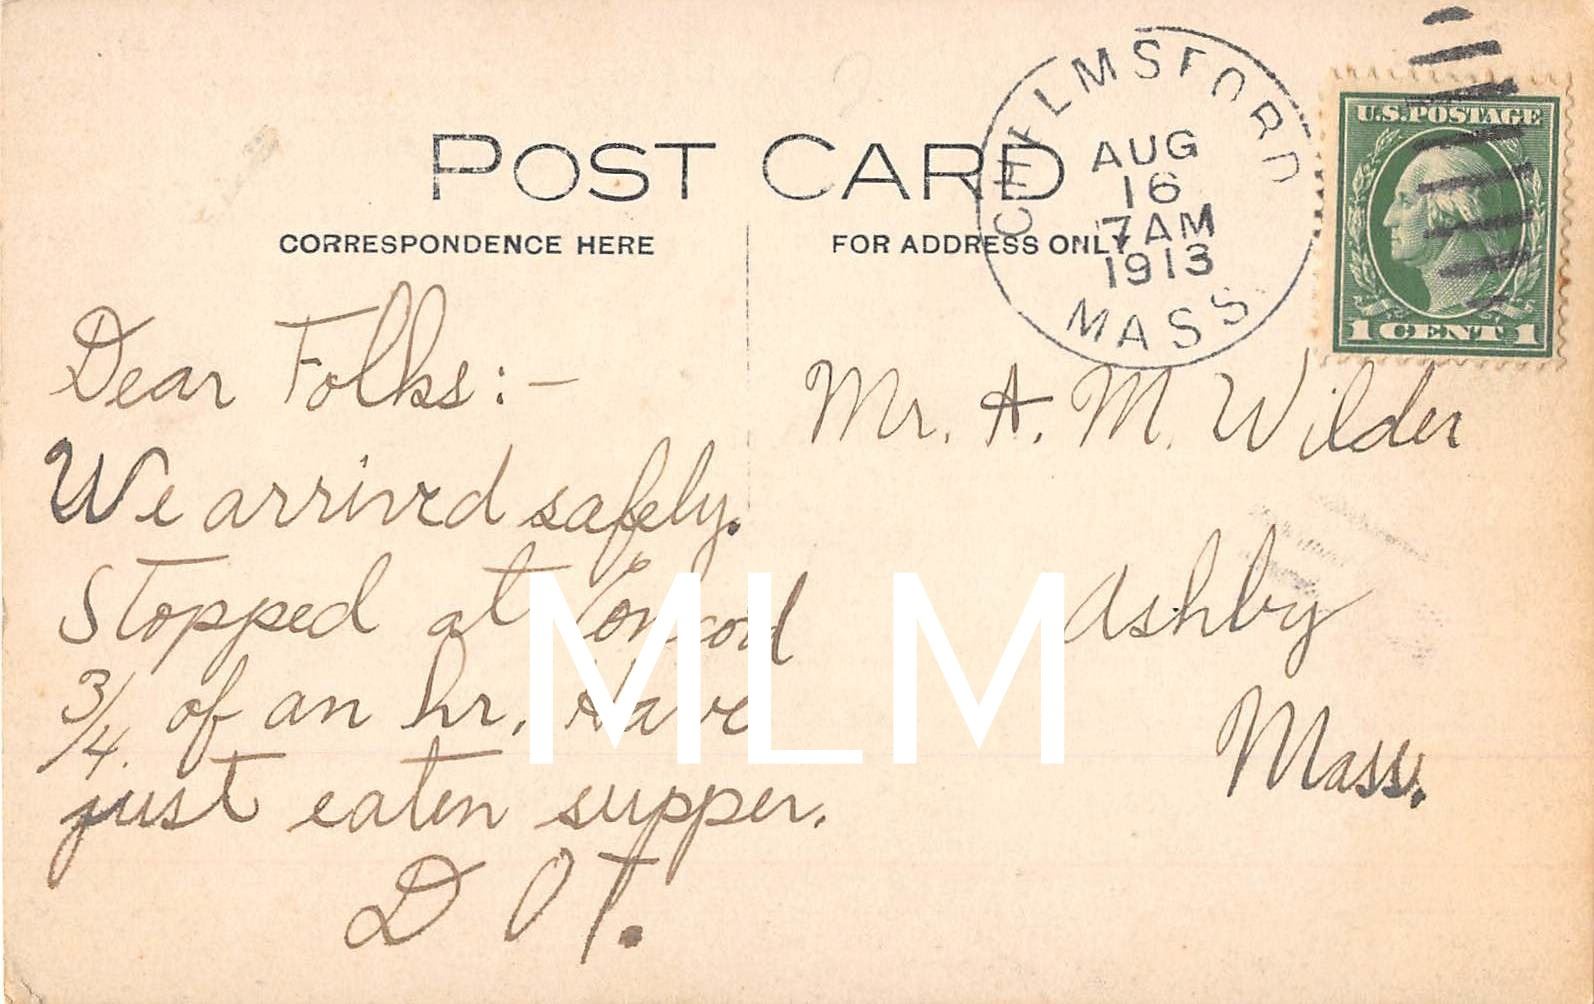 POST CARD
CORRESPONDENCE HERE
FOR ADDRESS ONLY
CHELMSFORD
AUG
16
7 AM
1913
MASS.
U.S. POSTAGE
1 CENT 1
Dear Folks:-
We arrived safely.
Stopped at Concord
3/4. of an hr. Have
just eaten supper.
DOT.
Mr. A. M. Wilder
Ashby
Mass.
MLM